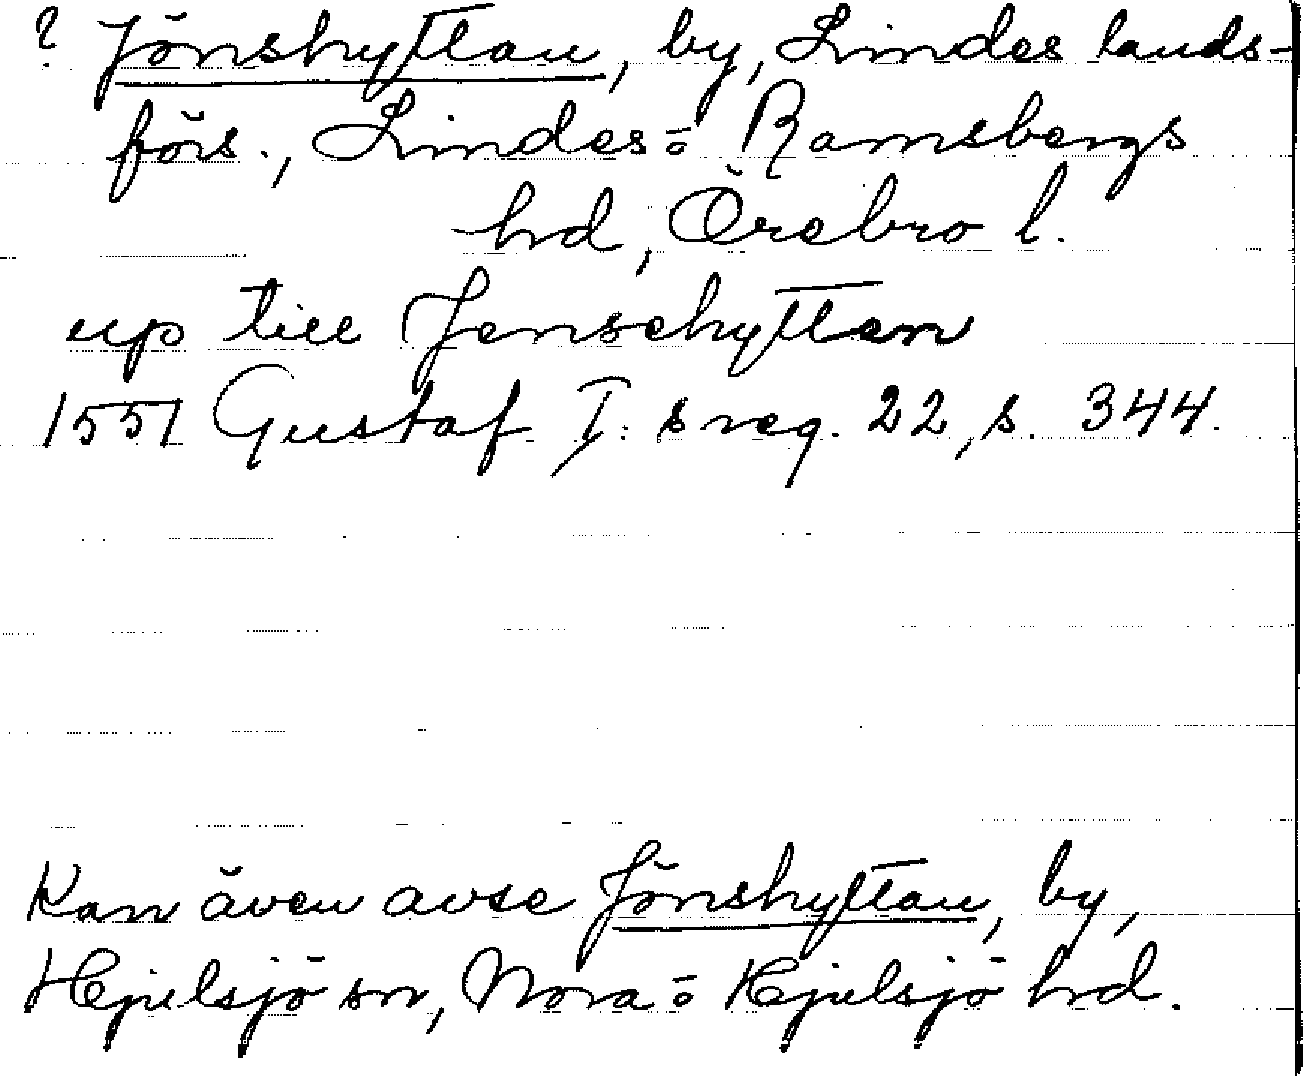 ? Jönshyttan, by, Lindes lands-
förs., Lindes- o Ramsbergs
hrd, Örebro l.
up till Jensehytten
1551 Gustaf I:s reg. 22, s. 344.
Kan även avse Jönshyttan, by,
Hjulsjö sn, Nora- o Hjulsjö hrd.